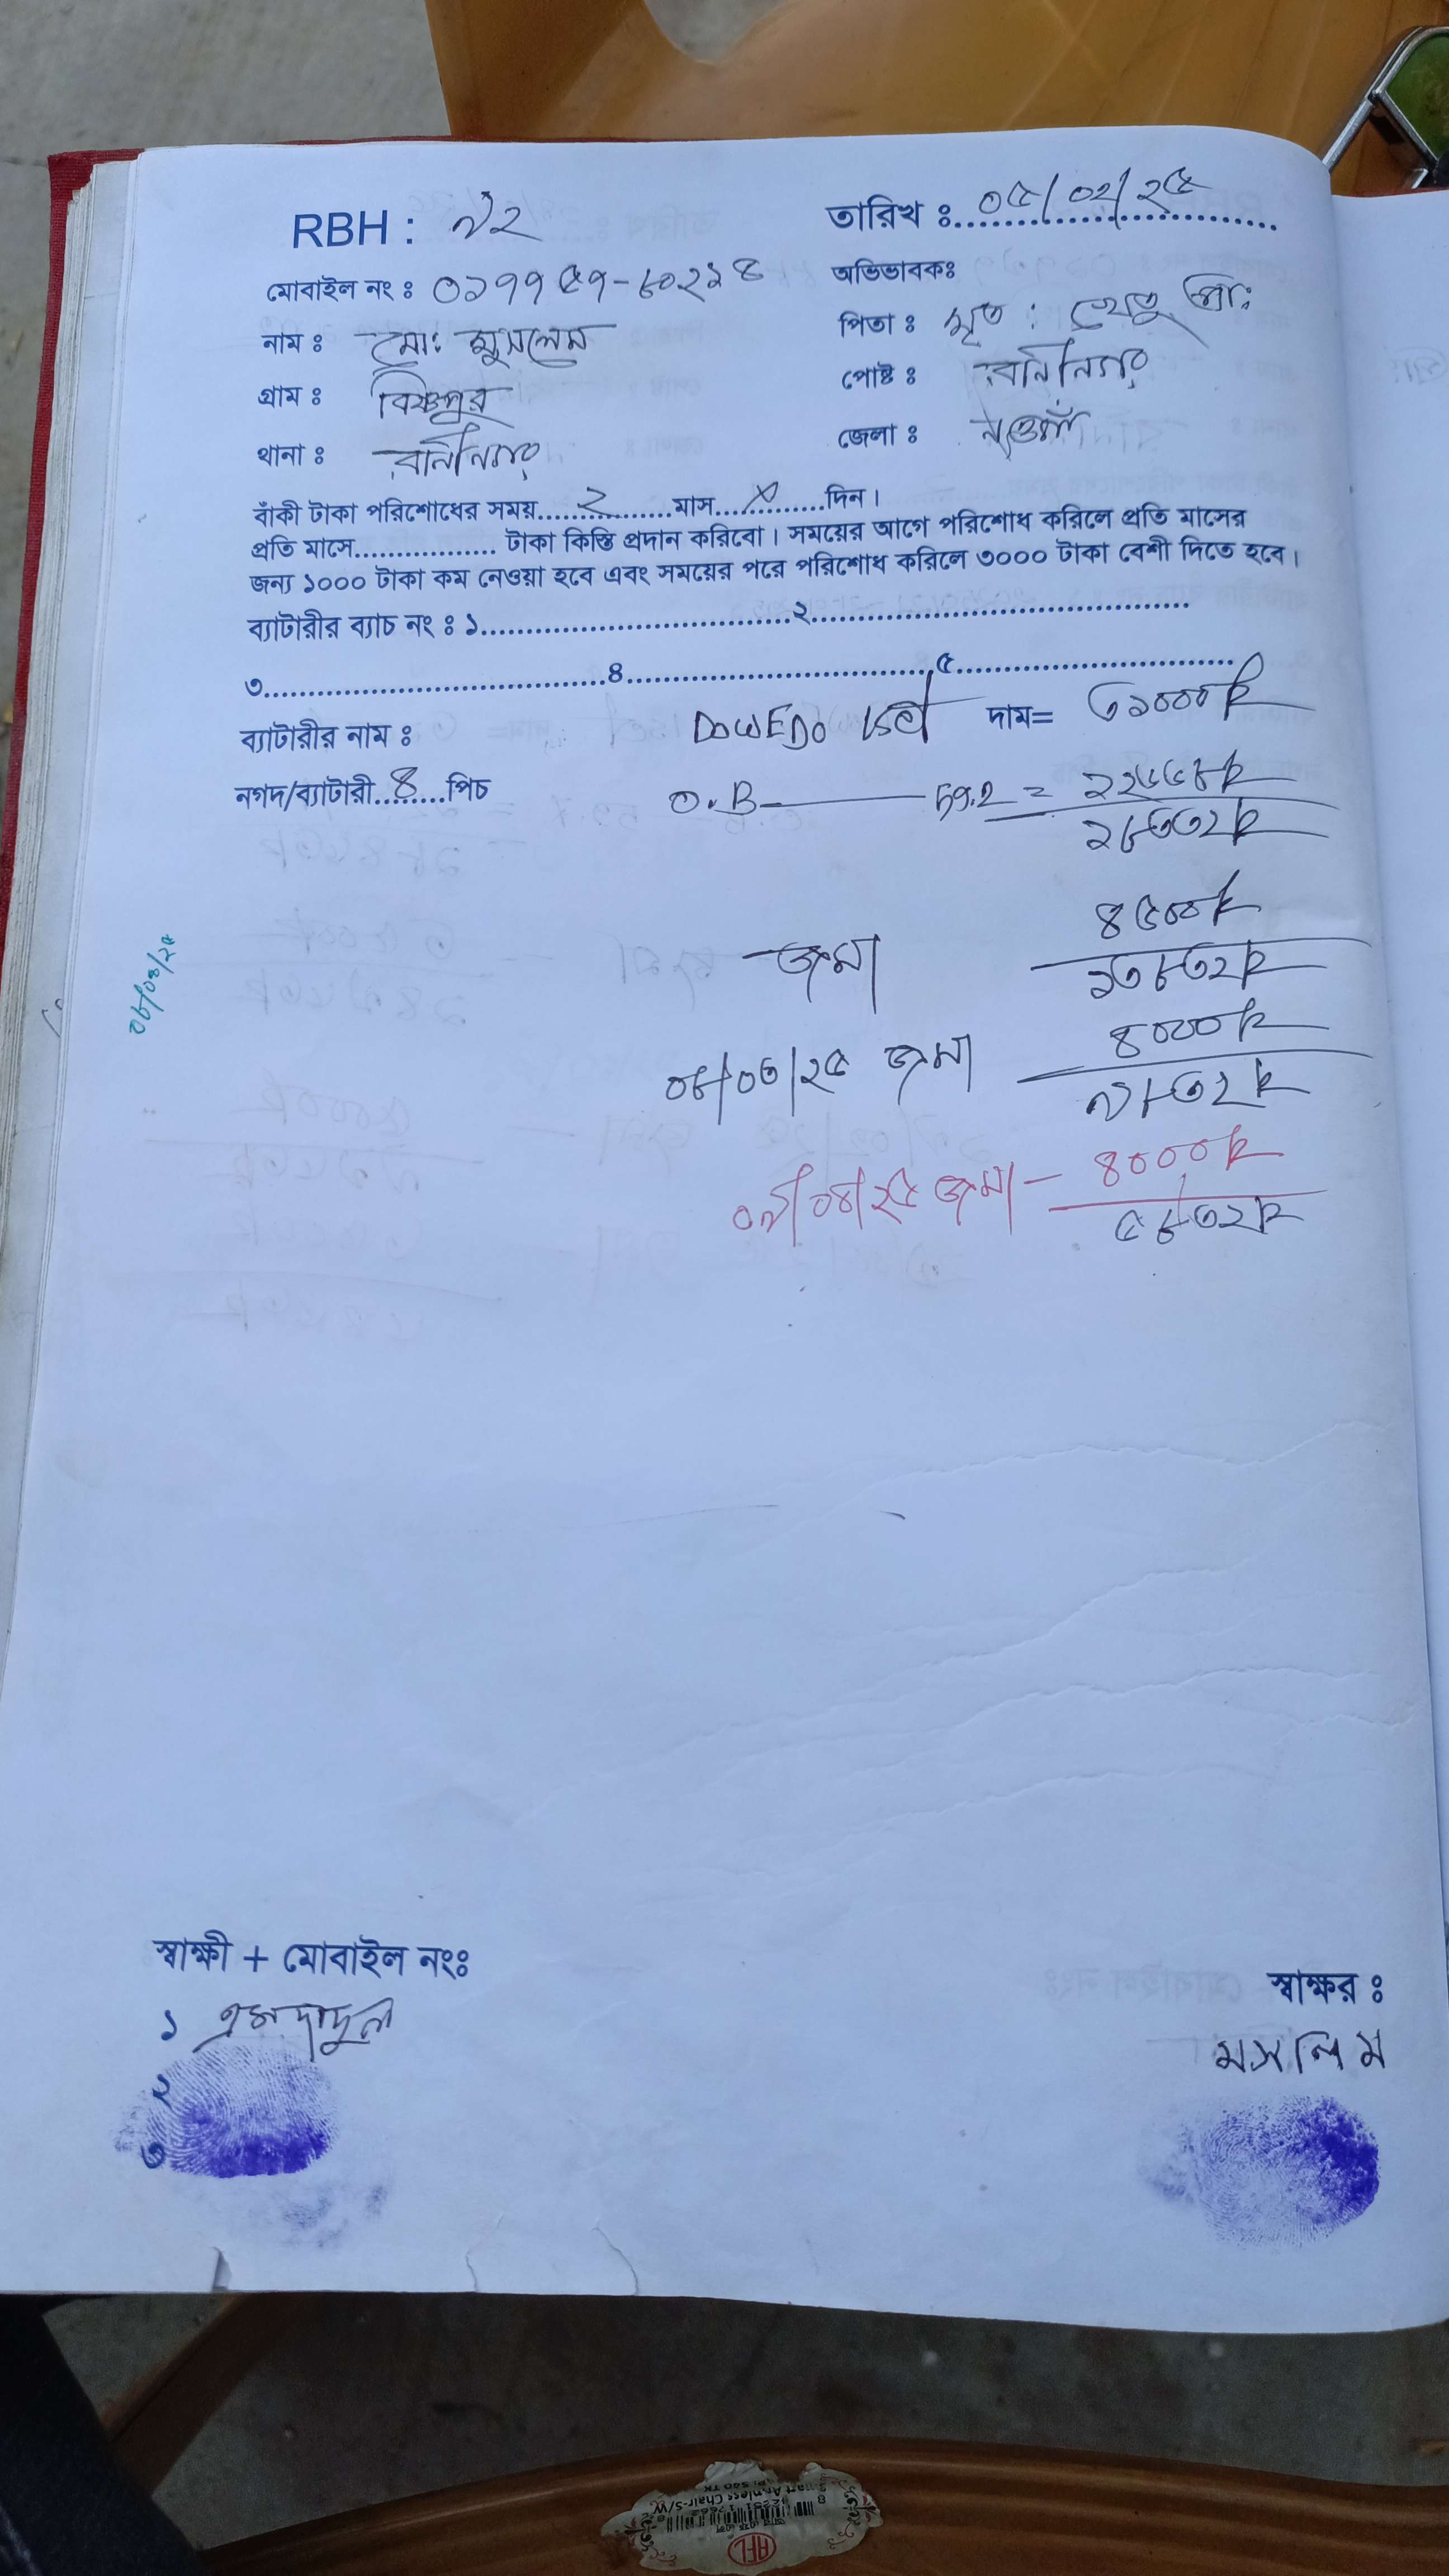 RBH : ৯২
তারিখ ঃ ০৫/০২/২৫
মোবাইল নং ঃ ০১৭৭৫৭-৮০২১৪
অভিভাবকঃ
নাম ঃ মোঃ মুসলেম
পিতা ঃ মৃত : খেতু প্রাং
গ্রাম ঃ বিষ্ণপুর
পোষ্ট ঃ রানীনগর
থানা ঃ রানীনগর
জেলা ঃ নওগাঁ
বাঁকী টাকা পরিশোধের সময়......২......মাস...X......দিন।
প্রতি মাসে.................. টাকা কিস্তি প্রদান করিবো। সময়ের আগে পরিশোধ করিলে প্রতি মাসের
জন্য ১০০০ টাকা কম নেওয়া হবে এবং সময়ের পরে পরিশোধ করিলে ৩০০০ টাকা বেশী দিতে হবে।
ব্যাটারীর ব্যাচ নং ঃ ১........................................২................................................
৩............................................৪........................................৫....................................
ব্যাটারীর নাম ঃ DOWEDO দাম= ৩১০০০
নগদ/ব্যাটারী..৪......পিচ O.B 59.2 =
জমা ৪৫০০
১৩৮৩২
০৮/০৩/২৫ জমা ৪০০০
৯৮৩২
০৯/০৪/২৫ জমা — ৪০০০
৫৮৩২
০৮/০৪/২৫
স্বাক্ষী + মোবাইল নংঃ
স্বাক্ষর ঃ
১ এমদাদুল
মসলিম
২
৩
AFL